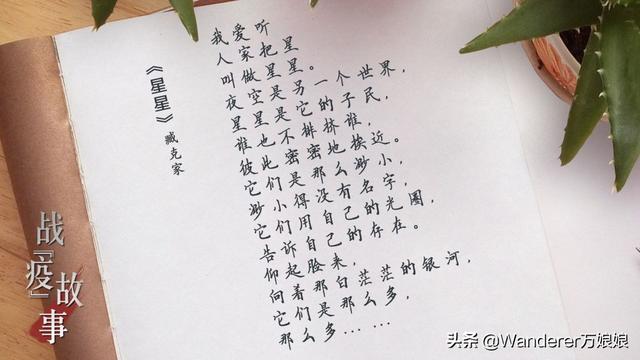 《星星》
臧克家
我爱听
人家把星
叫做星星。
夜空是另一个世界，
星星是它的子民，
谁也不排挤谁，
彼此密密地挨近。
它们是那么渺小，
渺小得没有名字，
它们用自己的光圈，
告诉自己的存在。
仰起脸来，
向着那白茫茫的银河，
它们是那么多，
那么多……
战『疫』
故事
头条 @Wanderer万娘娘